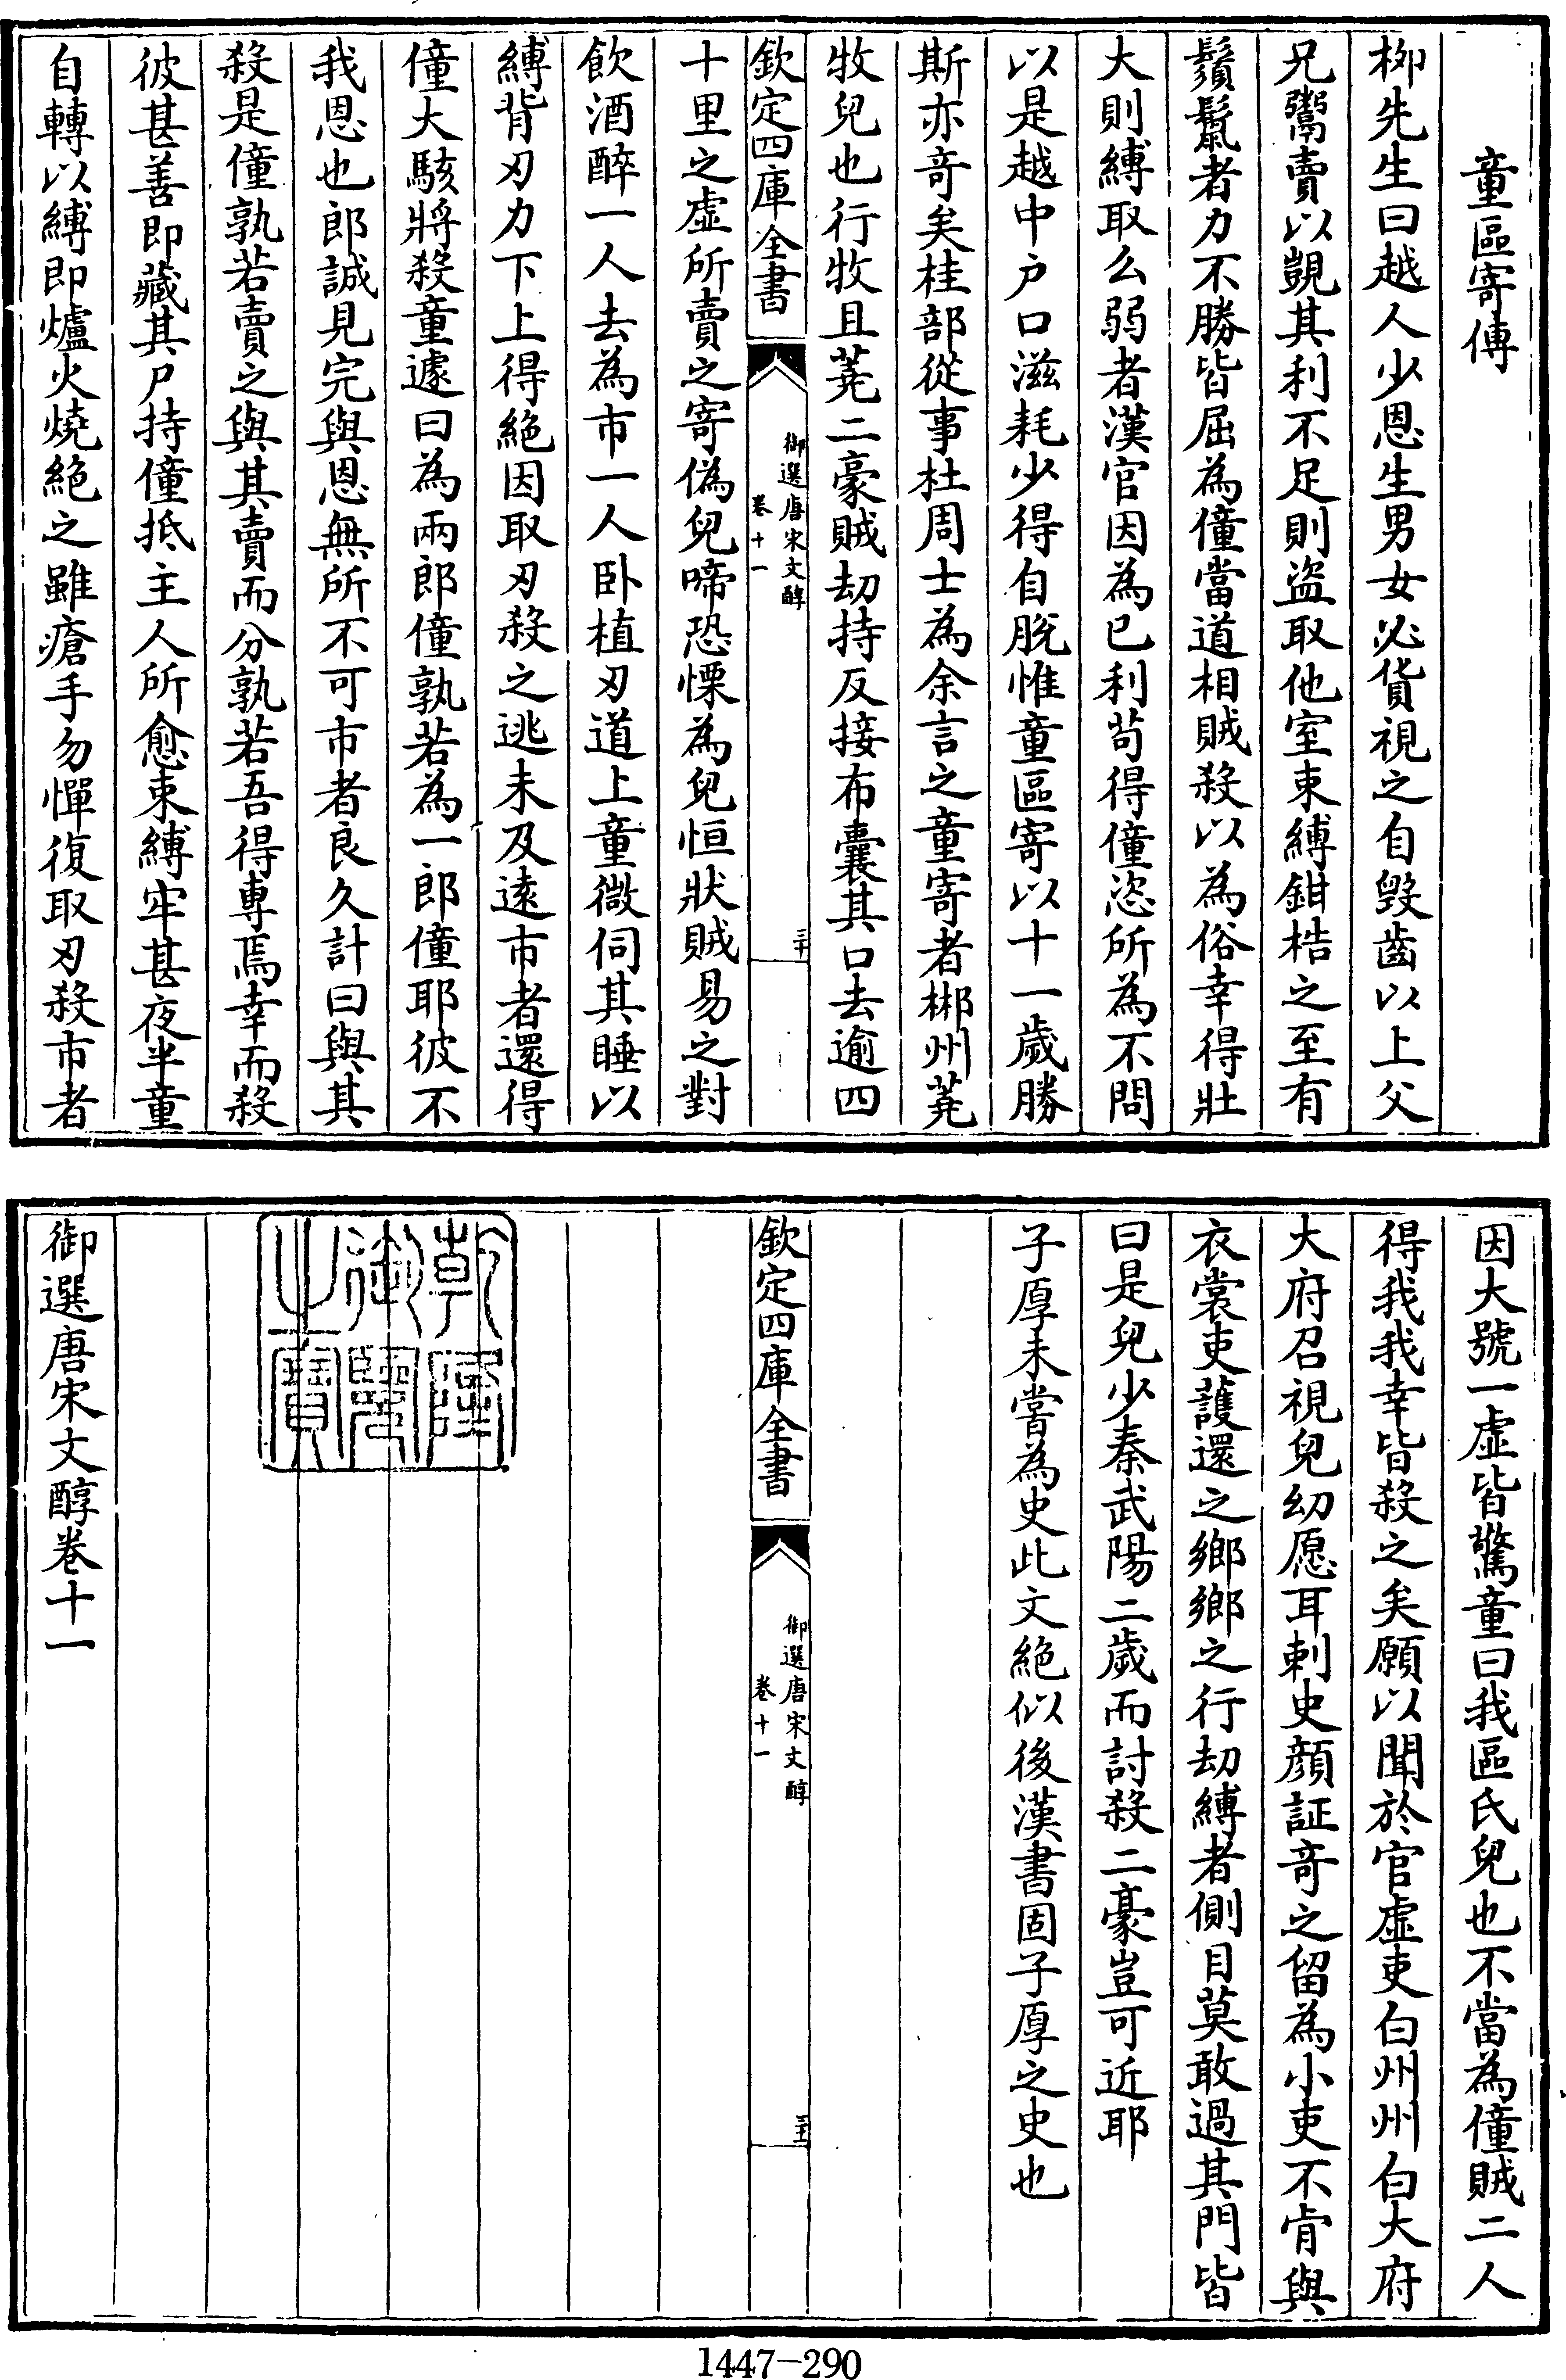 童區寄傳
柳先生曰越人少恩生男女必貨視之自毀齒以上父
兄鬻賣以覬其利不足則盜取他室束縛鉗梏之至有
鬚鬣者力不勝皆屈為僮當道相賊殺以為俗幸得壯
大則縛取么弱者漢官因為已利苟得僮恣所為不問
以是越中户口滋耗少得自脫惟童區寄以十一歲勝
斯亦奇矣桂部從事杜周士為余言之童寄者郴州蕘
牧兒也行牧且蕘二豪賊劫持反接布囊其口去逾四
欽定四庫全書
御選唐宋文醇
卷十一
三十
十里之虛所賣之寄偽兒啼恐慄為兒恒狀賊易之對
飲酒醉一人去為市一人卧植刃道上童微伺其睡以
縛背刃力下上得絕因取刃殺之逃未及遠市者還得
僮大駭將殺童遽曰為兩郎僮孰若為一郎僮耶彼不
我恩也郎誠見完與恩無所不可市者良久計曰與其
殺是僮孰若賣之與其賣而分孰若吾得專焉幸而殺
彼甚善即藏其尸持僮抵主人所愈束縛牢甚夜半童
自轉以縛即爐火燒絕之雖瘡手勿憚復取刃殺市者
因大號一虛皆驚童曰我區氏兒也不當為僮賊二人
得我我幸皆殺之矣願以聞於官虛吏白州州白大府
大府召視兒幼愿耳刺史顔証奇之留為小吏不肯與
衣裳吏護還之鄉鄉之行劫縛者側目莫敢過其門皆
曰是兒少秦武陽二歲而討殺二豪豈可近耶
子厚未嘗為史此文絕似後漢書固子厚之史也
欽定四庫全書
御選唐宋文醇
卷十一
三十一
乾隆
御覽
之寶
御選唐宋文醇卷十一
1447-290